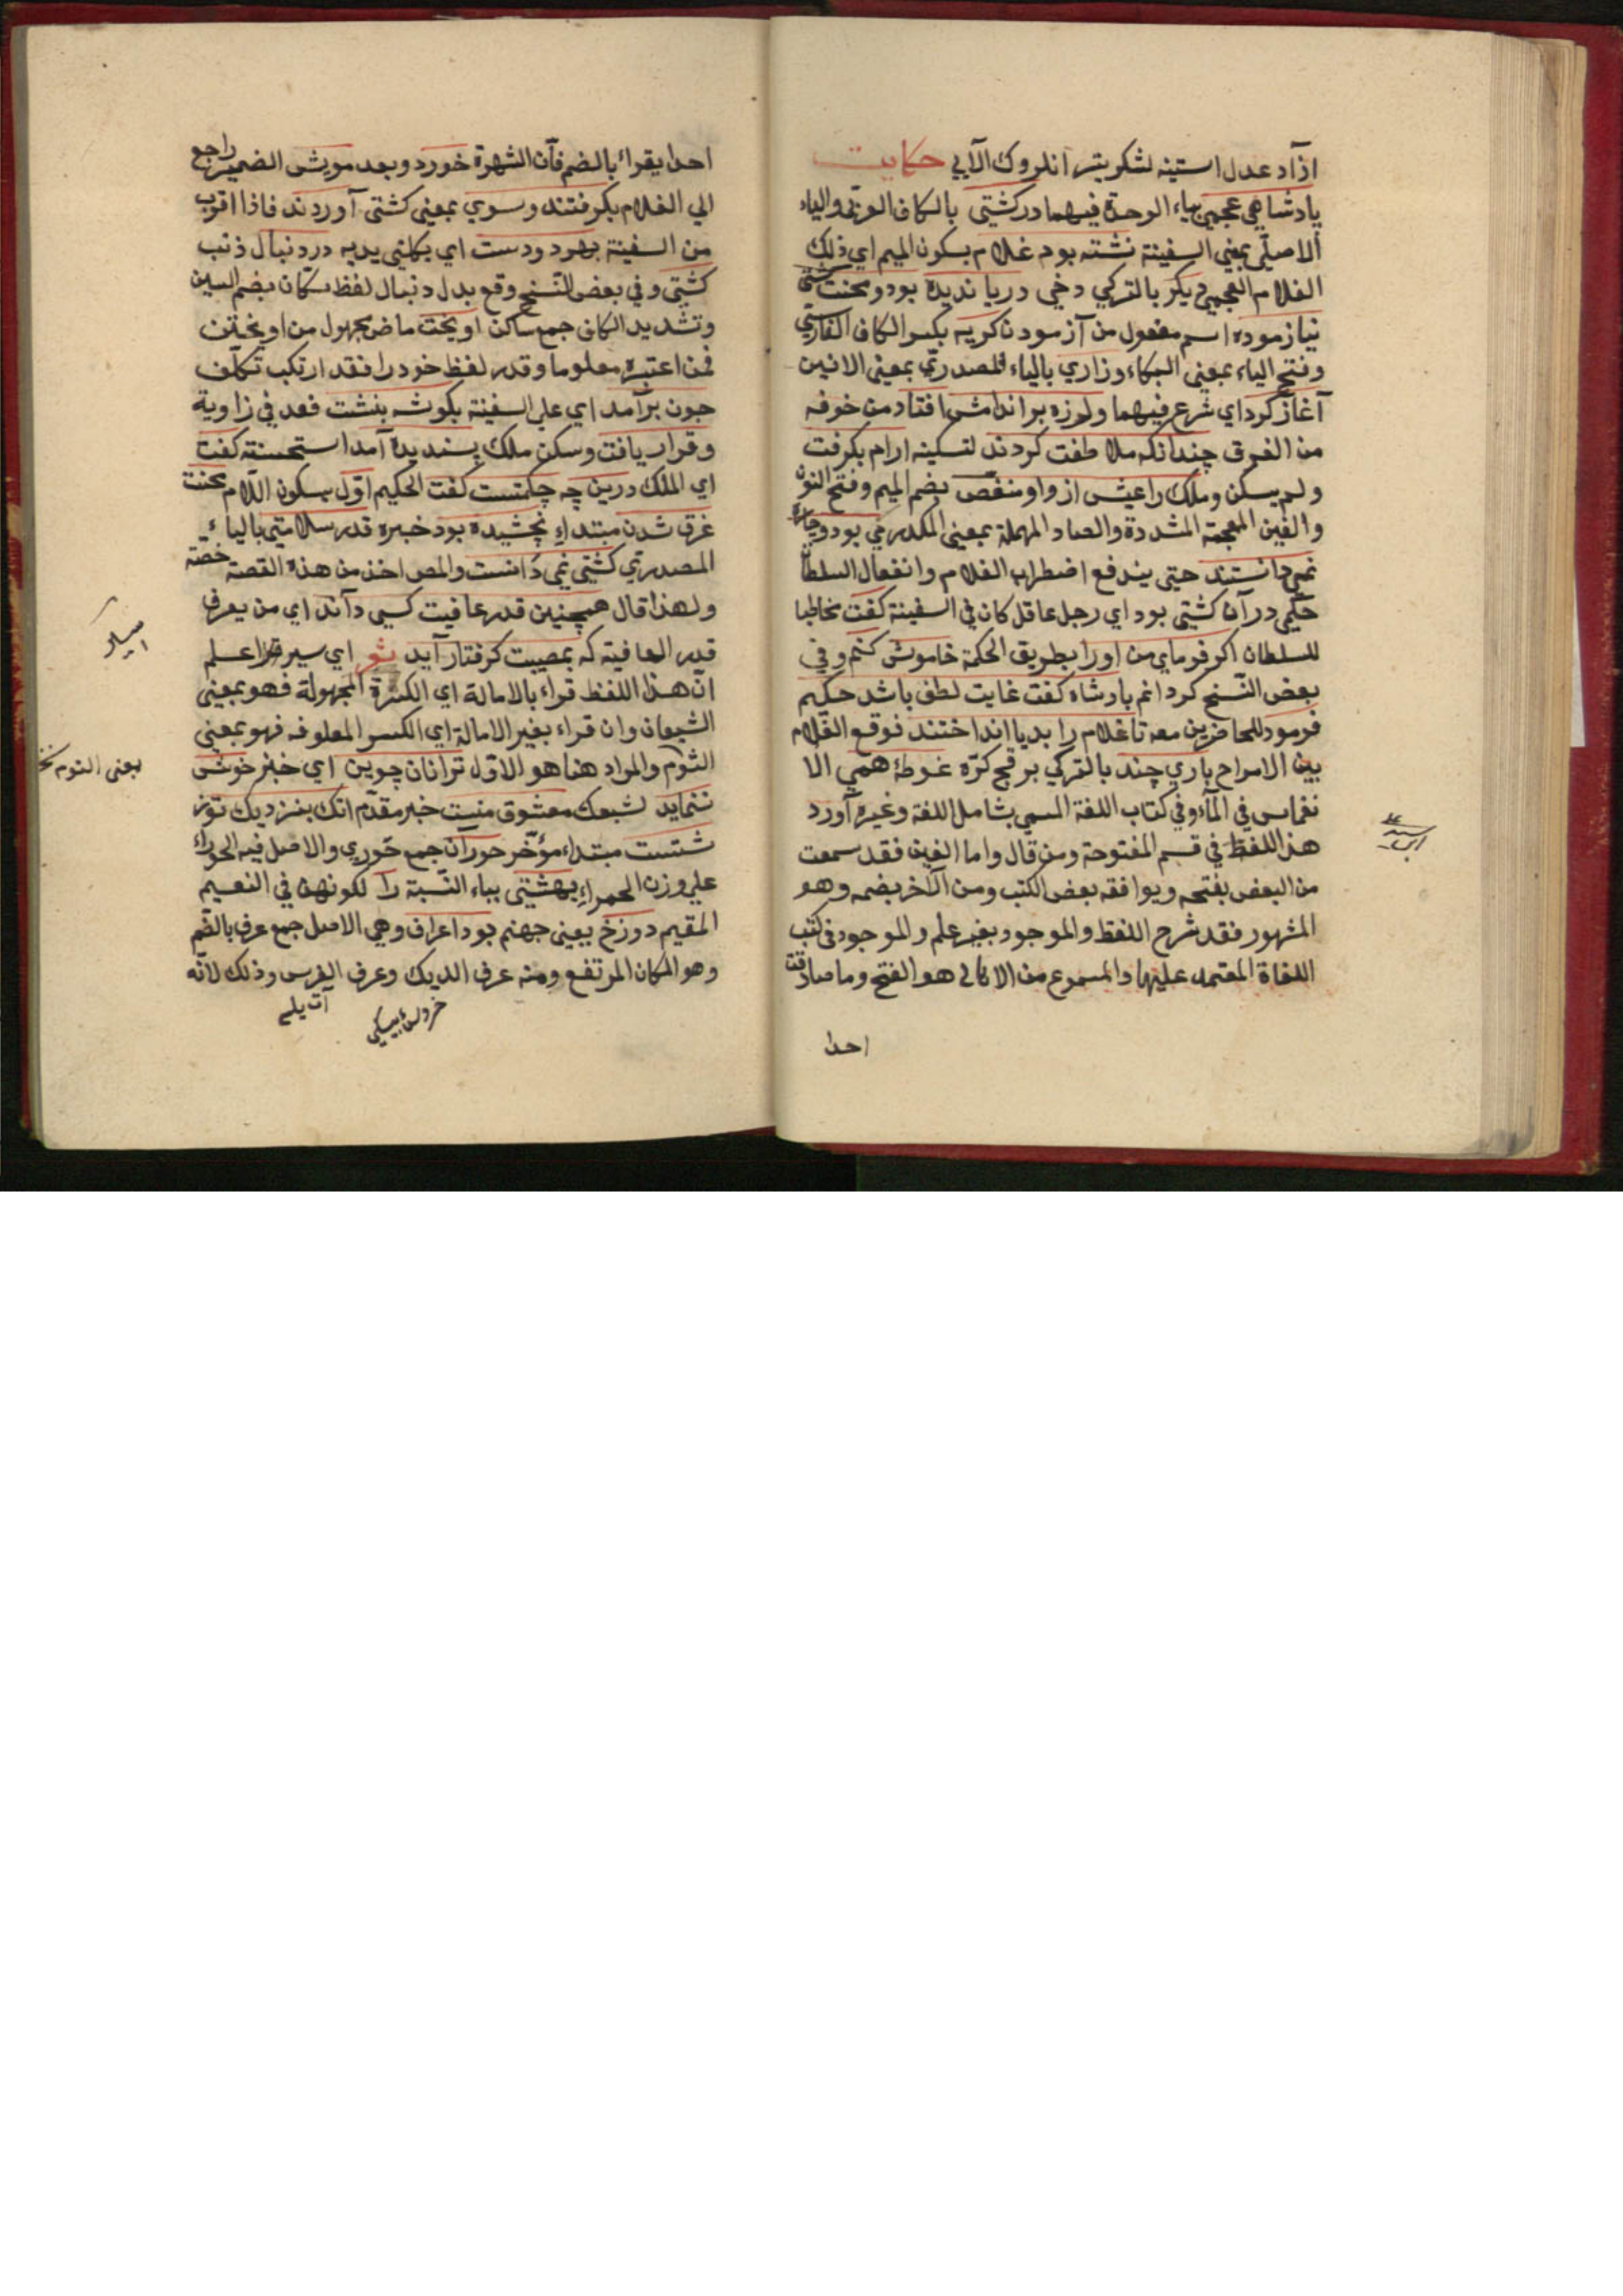 ازآد عدل استينه لشكر بتر انلروك الآيي حكايت
پادشاهي عجمي بياء الوحدة فيهما در كشتي بالكاف العربي والياء
الاصلي بمعني السفينة نشته بود غلام بسكون الميم اي ذلك
الغلام العجمي ديكر بالتركي دخي دريا نديده بود و محنت كشتي
نيازموده اسم مفعول من آزمودن كريه بكسر الكاف الفارسي
وفتح الياء بمعني البكاء وزاري بالياء المصدري بمعني الانين
آغاز كرد اي شرع فيهما ولرزه بر اندامش افتاد من خوفه
من الغرق چندانكه ملاطفت كردند لتسكينه ارام نكرفت
ولم يسكن وملك را عيش از واو منغص بضم الميم وفتح النون
والغين المعجمة المشددة والصاد المهملة بمعني المكدر مي بود و چارهٔ
نمي دانستند حتي يندفع اضطراب الغلام وانفعال السلطان
حكيمي در آن كشتي بود اي رجل عاقل كان في السفينة كفت مخاطبا
للسلطان اكر فرماي من اورا بطريق الحكمة خاموش كنم وفي
بعض النسخ كردانم پادشاه كفت غايت لطف باشد حكيم
فرمود للحاضرين معه تا غلام را بدريا انداختند فوقع الغلام
بين الامواج باري چند بالتركي بر قچ كرّه غوطه همي الا
نغماس في المآء وفي كتاب اللغة المسمي بشامل اللغة وغيره آورد
هذا اللفظ في قسم المفتوحة ومن قال واما الغين فقد سمعت
من البعض بفتحه ويوافقه بعض الكتب ومن الآخر بضمه وهو
المشهور فقد شرح اللفظ والموجود بغير علم والموجود في كتب
اللغاة المعتمد عليها والمسموع من الاهالي هو الفتح وما صادفت
احدا
احدا يقراء بالضم فآن الشهرة خورد وبعد مويش الضمير راجع
الي الغلام بكرفتند وسوي بمعني كشتي آوردند فاذا اقرب
من السفينة بهر دو دست اي بكلتي يديه در دنبال ذنب
كشتي وفي بعض النسخ وقع بدل دنبال لفظ سكان بضم السين
وتشديد الكاف جمع ساكن اويخت ماض مجهول من اويختن
فمن اعتبره معلوما وقدر لفظ خود را فقد ارتكب تكلف
جون برآمد اي علي السفينة بكوشه بنشت قعد في زاوية
وقرار يافت وسكن ملك پسنديده آمد استحسنه كفت
اي الملك درين چه حكمتست كفت الحكيم اوّل بسكون اللام محنت
غرق شدن مبتداء نچشيده بود خبره قدر سلامتي بالياء
المصدري كشتي نمي دانست والمص اخذ من هذه القصة حصّة
ولهذا قال همچنين قدر عافيت كسي داند اي من يعرف
قدر العافية كه بمصيبت كرفتار آيد شعر اي سير اعلم
انّ هذا اللفظ قراء بالامالة اي الكسرة المجهولة فهو بمعني
الشبعان وان قراء بغير الامالة اي الكسر المعلوفه فهو بمعني
الثوم والمراد هنا هو الاول ترا نان جوين اي خبز خوش
ننمايد لشبعك معشوق منست خبر مقدّم انك بنزديك تو ز
شتست مبتداء مؤخّر حوران جمع حوري والاصل فيه الحوراء
علي وزن الحمراء بهشتي بياء النسبة را لكونهن في النعيم
المقيم دوزخ يعني جهنم بود اعراف وهي الاصل جمع عرف بالضم
وهو المكان المرتفع ومنه عرف الديك وعرف الفرس وذلك لانّه
بعني الثوم